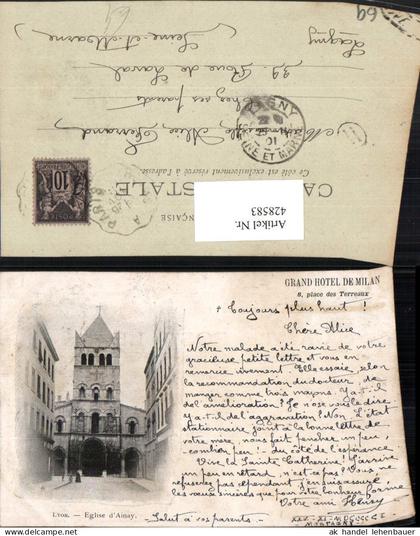 Lagny
Seine-et-Marne
Chez ses parents
Mademoiselle Alice
LAGNY
01
ET MARNE
Ce côté est exclusivement réservé à l'adresse
POSTALE
10
Artikel Nr.
428583
69
GRAND HOTEL DE MILAN
8, place des Terreaux
+ Toujours plus haut !
Chère Alice
Notre malade a été ravie de votre
gracieuse petite lettre et vous en
remercie vivement. Elle essaie, selon
la recommandation du docteur, de
manger comme trois mayons. Y a-t-il
de l'amélioration? Je n'ose vous le dire.
y a-t-il de l'aggravation? Non. L'état
stationnaire joint à la bonne lettre de
votre mère, nous fait pencher un peu,
- combien peu! - du côté de l'espérance.
Vive la Sainte Catherine! J'arrive
un peu en retard, n'est-ce pas? Vous ne
refuserez pas cependant, j'en suis assuré
les vœux sincères que pour votre bonheur forme
Votre ami
Salut à vos parents.-
LYON. — Eglise d'Ainay.
www.ak-handel-lehenbauer.at